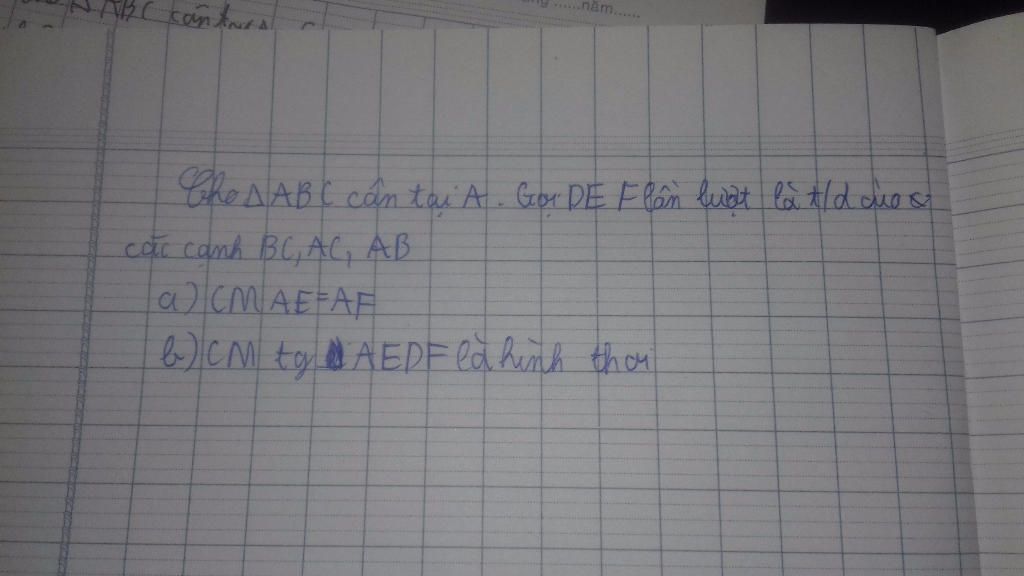 ΔABC cân
năm......
Cho Δ ABC cân tại A. Gọi DE F lần lượt là t/đ của
các cạnh BC, AC, AB
a) CM AE=AF
b) CM tg AEDF là hình thoi